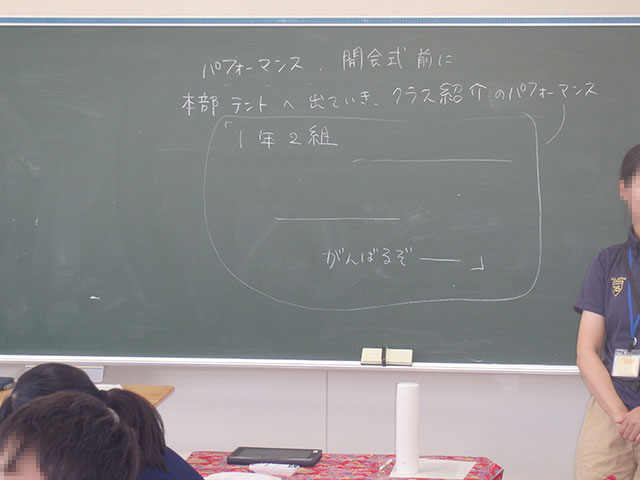 パフォーマンス、開会式前に
本部テントへ出ていき、クラス紹介のパフォーマンス
「1年2組
がんばるぞ――」